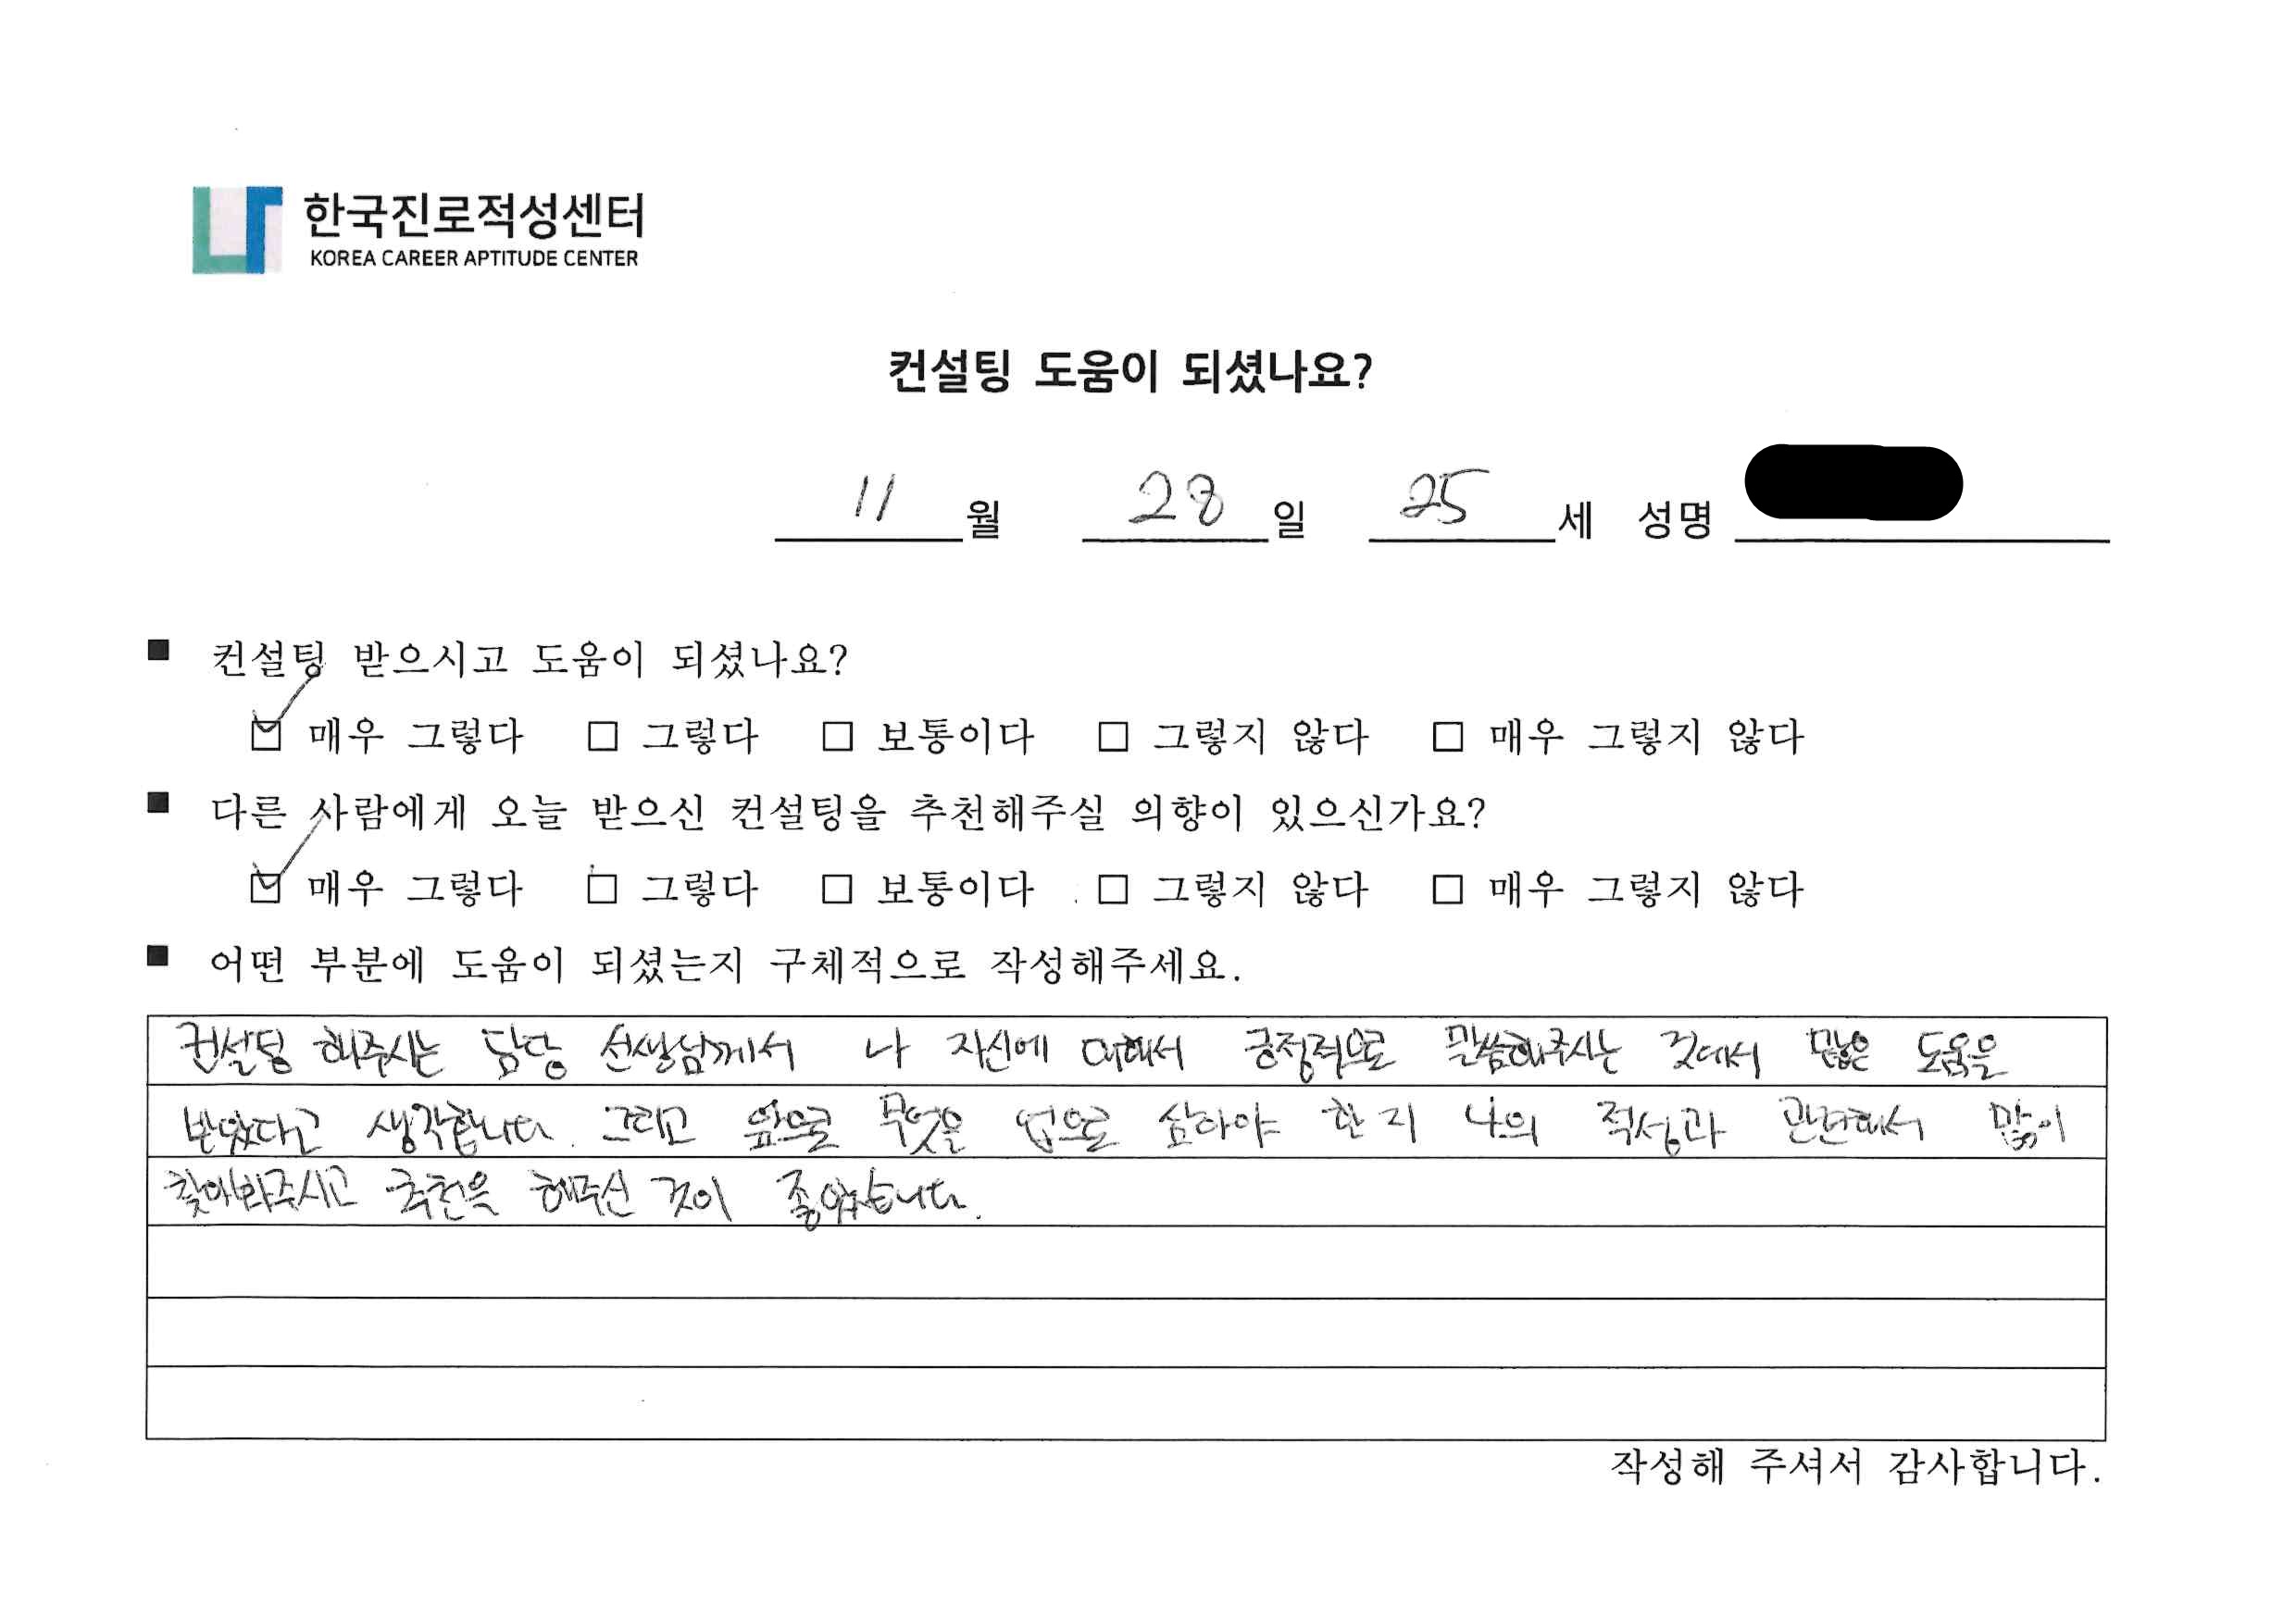 한국진로적성센터
KOREA CAREER APTITUDE CENTER
컨설팅 도움이 되셨나요?
11 월 28 일 25 세 성명
■ 컨설팅 받으시고 도움이 되셨나요?
☑ 매우 그렇다 □ 그렇다 □ 보통이다 □ 그렇지 않다 □ 매우 그렇지 않다
■ 다른 사람에게 오늘 받으신 컨설팅을 추천해주실 의향이 있으신가요?
☑ 매우 그렇다 □ 그렇다 □ 보통이다 □ 그렇지 않다 □ 매우 그렇지 않다
■ 어떤 부분에 도움이 되셨는지 구체적으로 작성해주세요.
컨설팅 해주시는 담당 선생님께서 나 자신에 대해서 긍정적으로 말씀해주시는 것에서 많은 도움을
받았다고 생각합니다. 그리고 앞으로 무엇을 업으로 삼아야 한지 나의 적성과 관련해서 많이
찾아봐주시고 추천을 해주신 것이 좋았습니다.
작성해 주셔서 감사합니다.